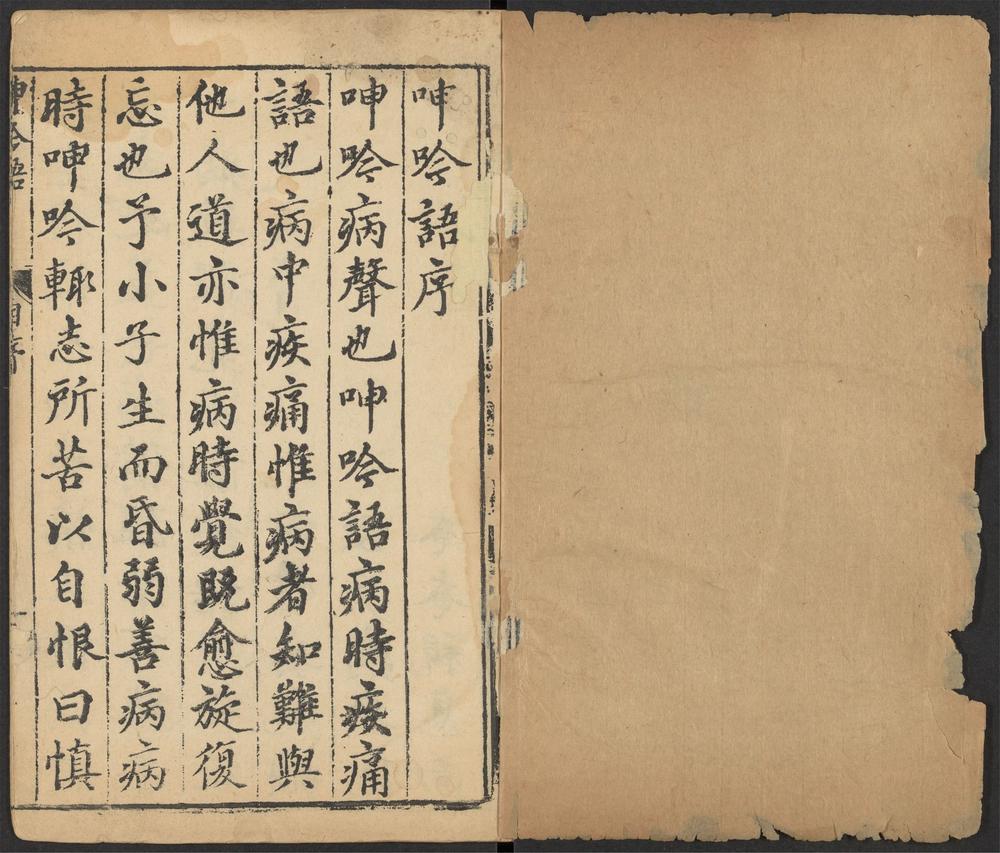 呻吟語序
呻吟病聲也呻吟語病時疾痛
語也病中疾痛惟病者知難與
他人道亦惟病時覺既愈旋復
忘也予小子生而昏弱善病病
時呻吟輙志所苦以自恨曰慎
呻吟語
自序